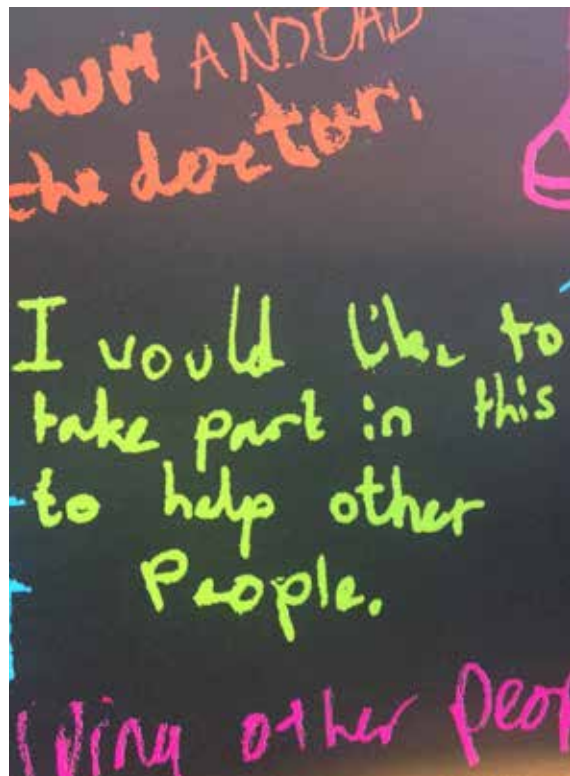 MUM AND DAD
the doctor.
I would like to
take part in this
to help other
People.
other